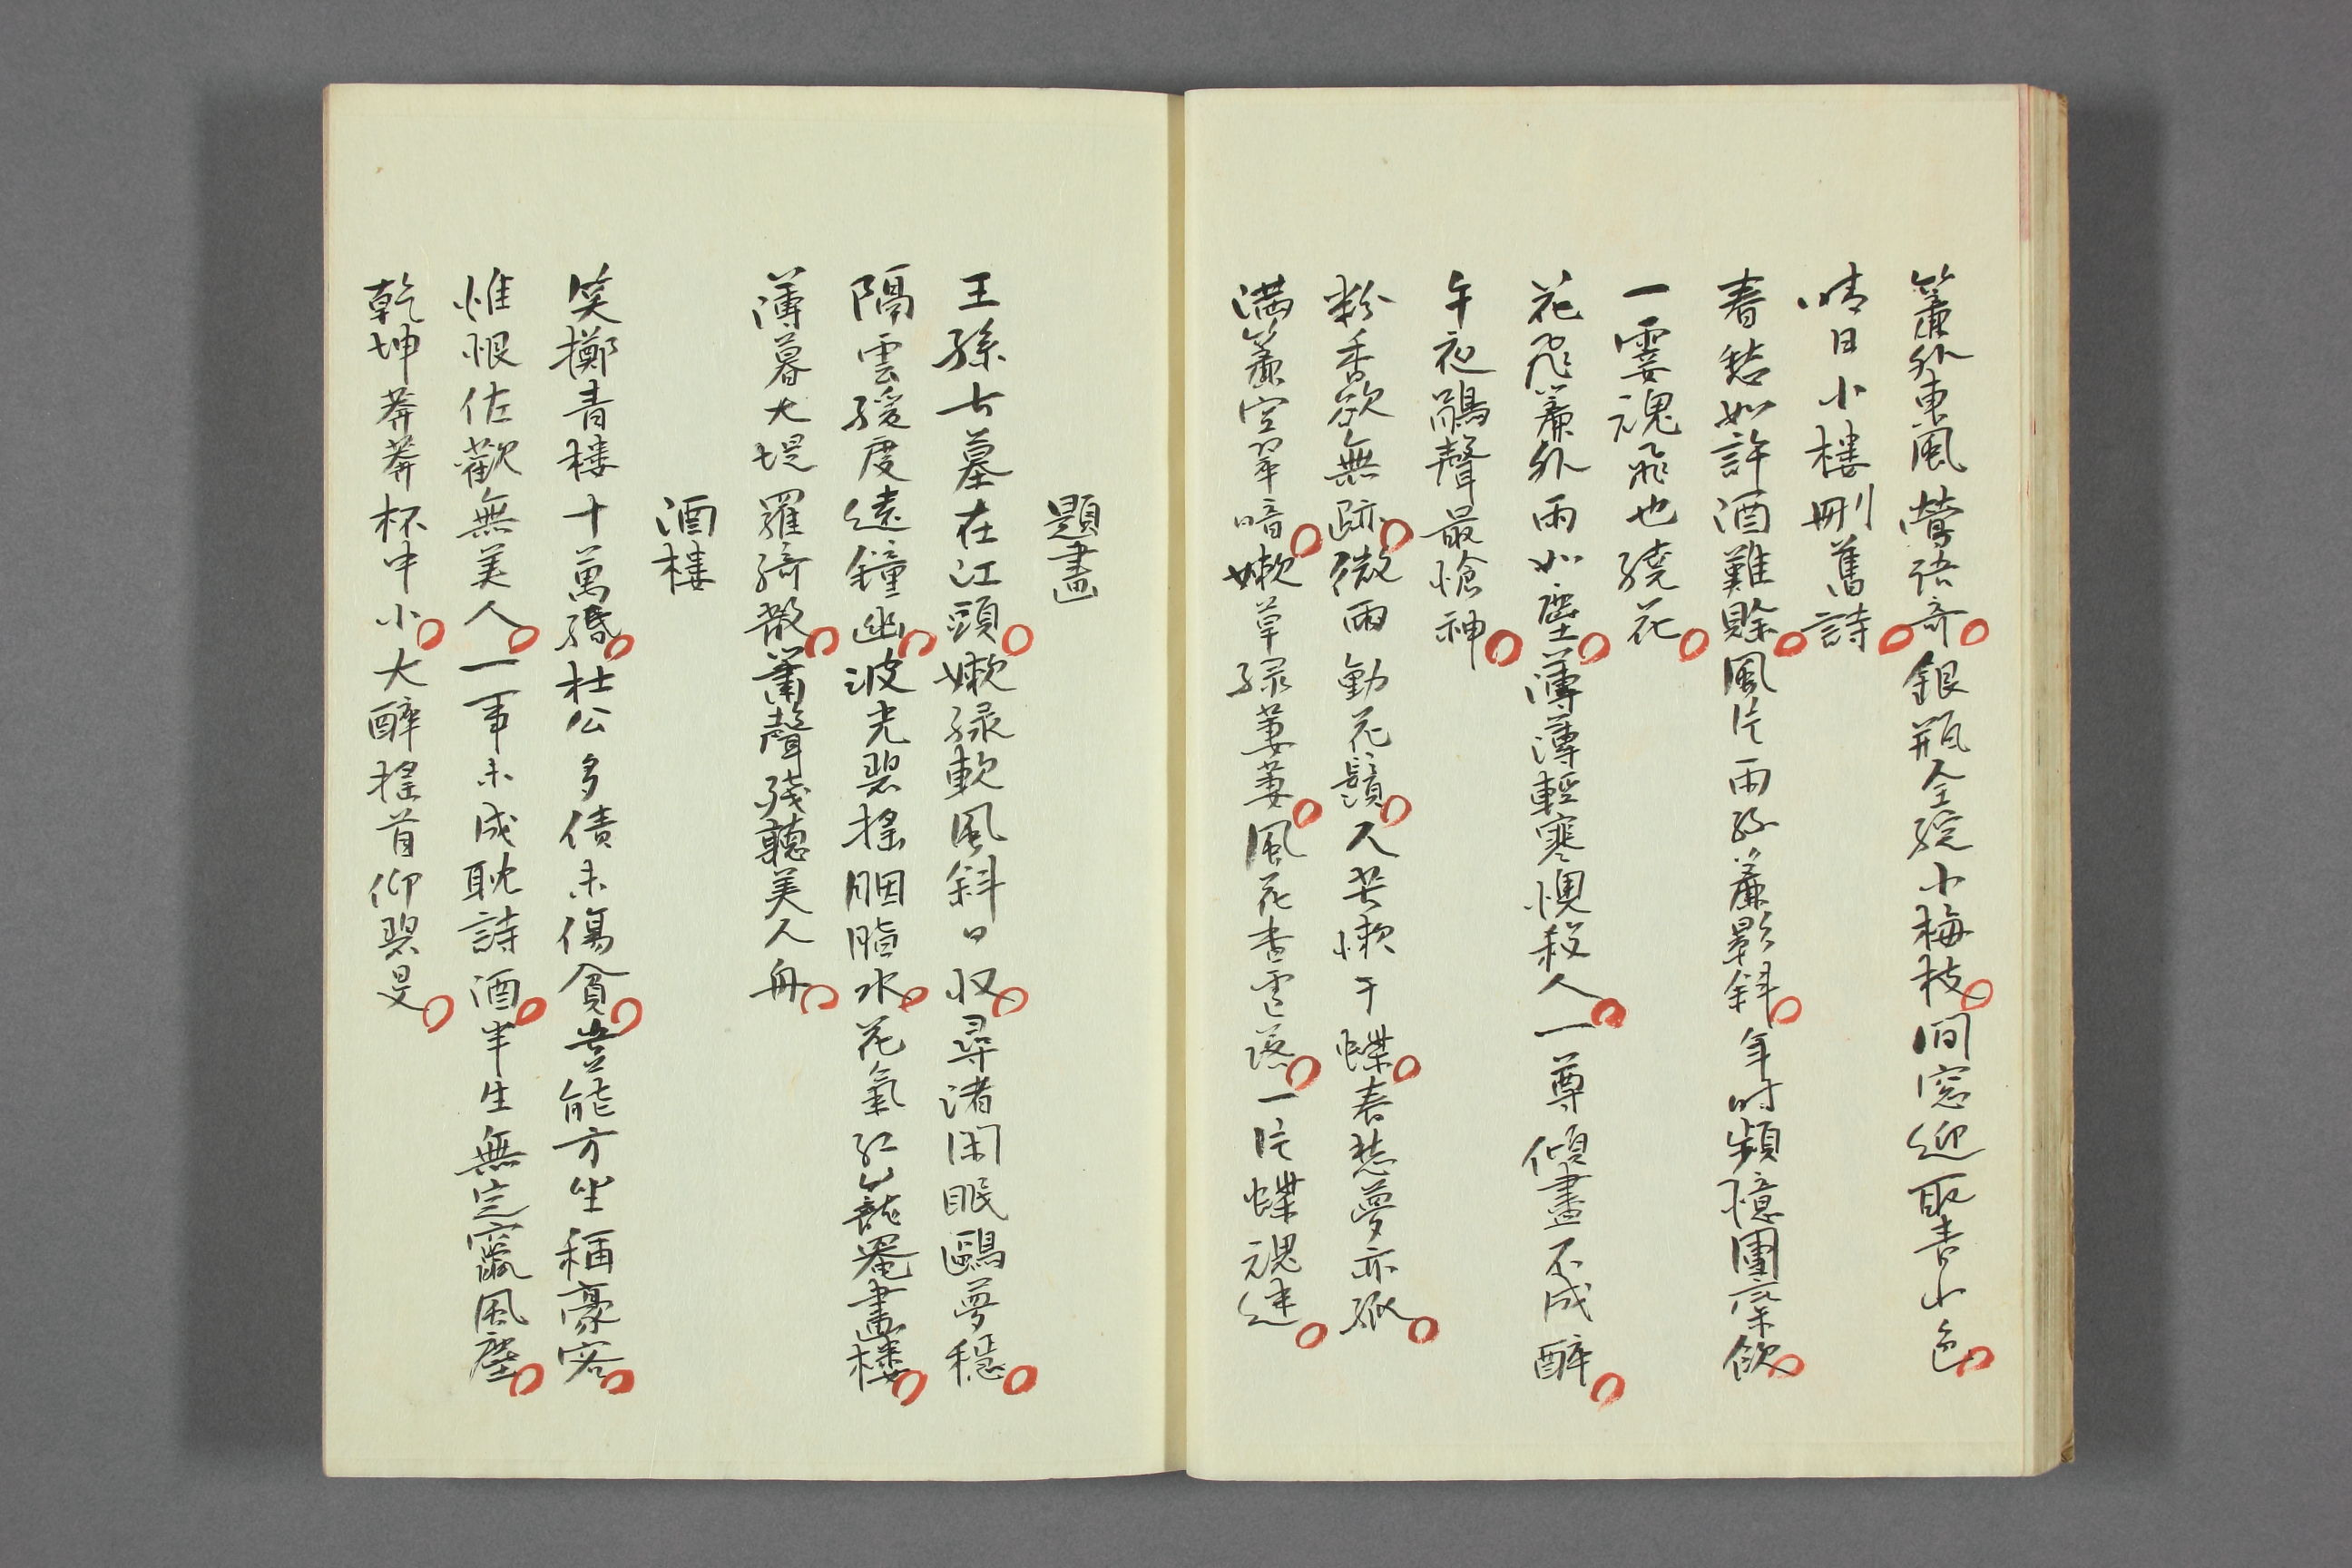 簾外東風鶯語奇銀瓶全綻小梅枝間窓迎取青山色
晴日小樓刪舊詩
春愁如許酒難賒風片雨絲簾影斜年時頻憶團欒飲
一霎魂飛也繞花
花飛簾外雨如塵薄薄輕寒懊殺人一尊傾盡不成醉
午夜鵑聲最愴神
粉香欲無跡微雨動花鬚人共嫩于蝶春愁夢亦孤
満簾空翠暗嫩草緑萋萋風花杳靄落一片蝶魂迷
題畫
王孫古墓在江頭嫩緑軟風斜日収尋渚閑眠鷗夢穏
隔雲緩度遠鐘幽波光碧搖胭脂水花氣紅籠罨畫樓
薄暮大堤羅綺散簫聲殘聴美人舟
酒樓
笑擲青樓十萬緡杜公多債未傷貧豈能方坐稱豪客
惟恨佐歡無美人一事未成耽詩酒半生無定寄風塵
乾坤莽莽杯中小大醉搖首仰碧旻